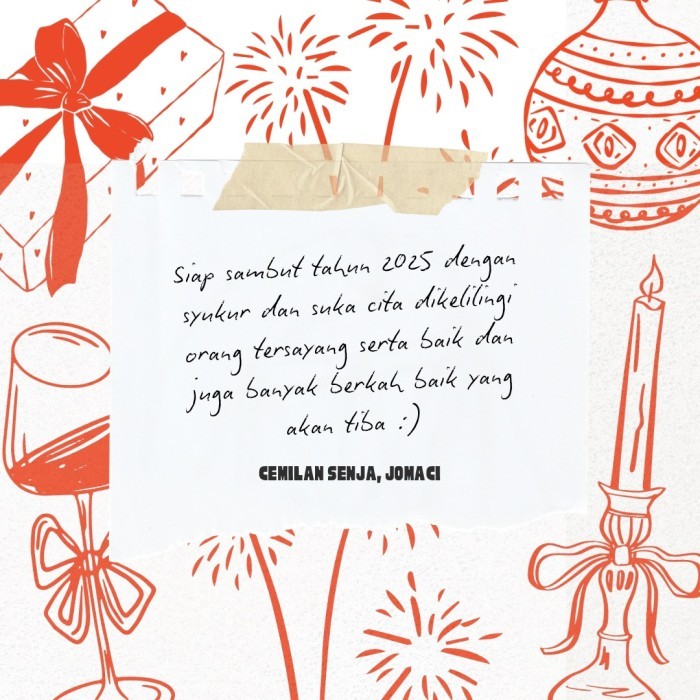 Siap sambut tahun 2025 dengan
syukur dan suka cita dikelilingi
orang tersayang serta baik dan
juga banyak berkah baik yang
akan tiba :)
CEMILAN SENJA, JOMACI